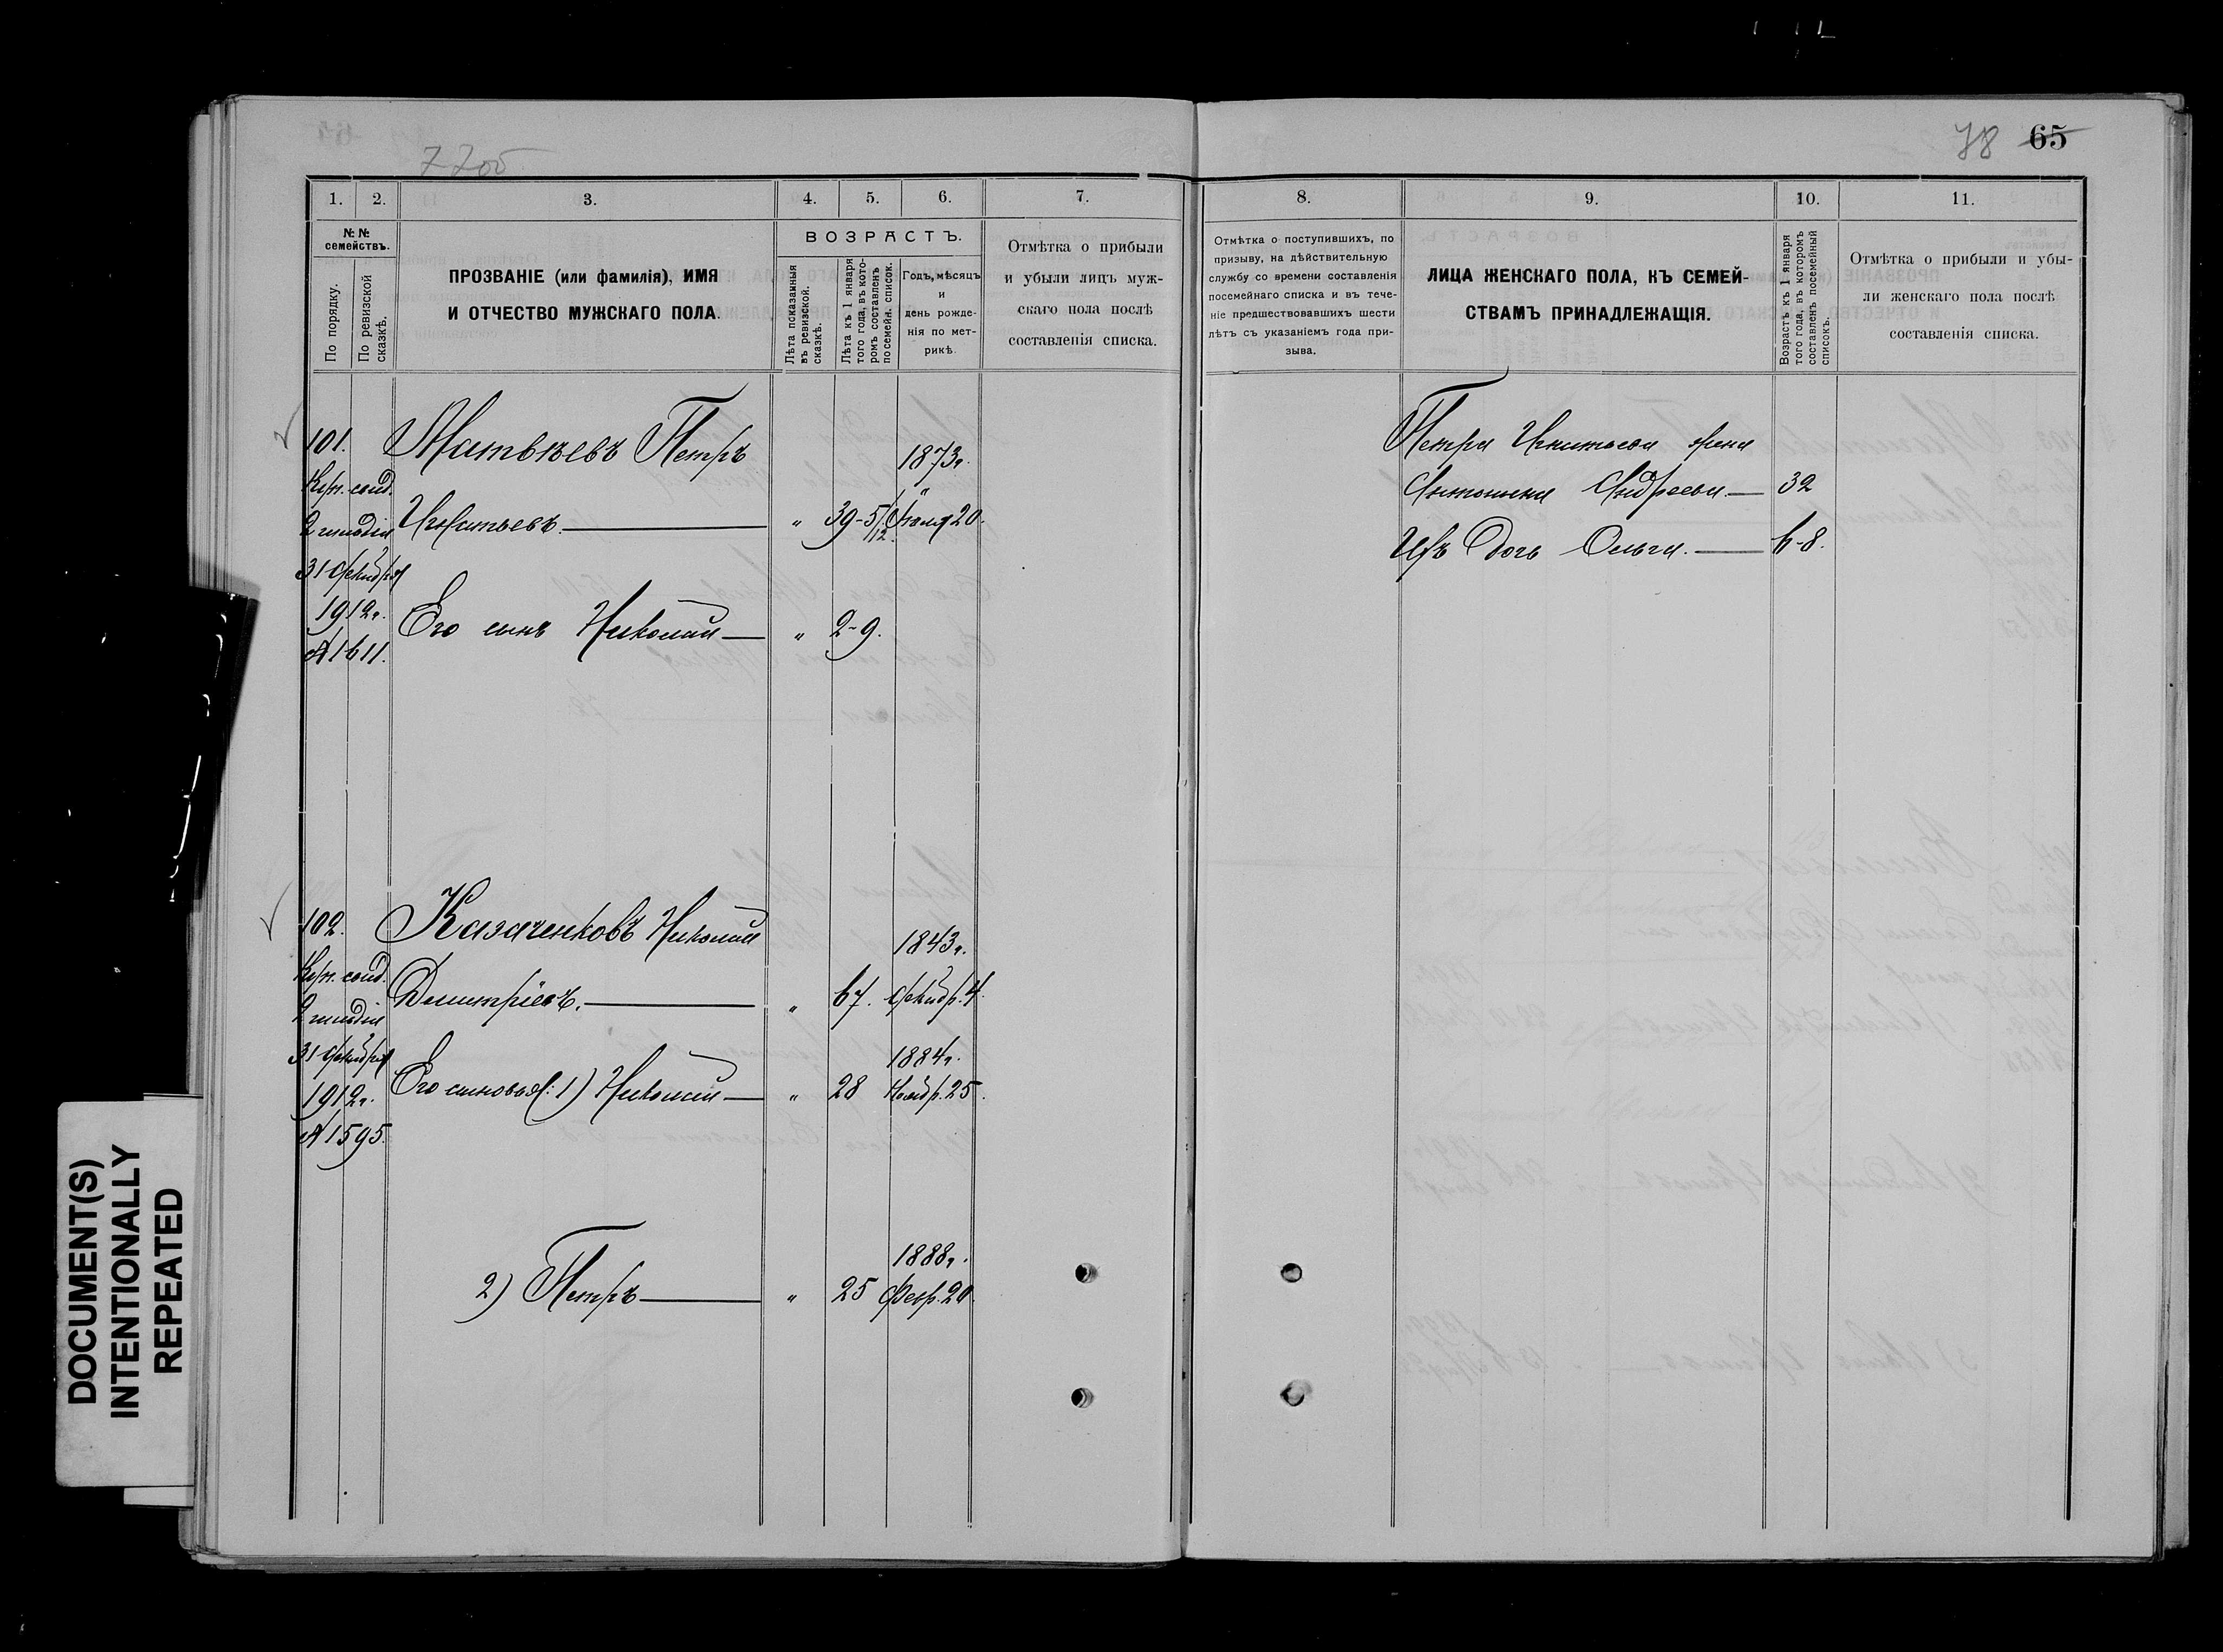 77 об
78 65
1. 2. 3. 4. 5. 6. 7.
№ № семействъ.
По порядку.
По ревизской сказкѣ.
ПРОЗВАНІЕ (или фамилія), ИМЯ
И ОТЧЕСТВО МУЖСКАГО ПОЛА.
ВОЗРАСТЪ.
Лѣта показанныя въ ревизской сказкѣ.
Лѣта къ 1 января того года, въ которомъ составленъ посемейн. список.
Годъ, мѣсяцъ
и
день рожде-
нія по мет-
рикѣ.
Отмѣтка о прибыли
и убыли лицъ муж-
скаго пола послѣ
составленія списка.
101. Матвѣевъ Петръ 1873г.
Игнатьевъ. „ 39-5/12. 20.
31 Декабря
1912г.
Его сынъ Николай „ 2-9.
№ 1611.
102. Казаченковъ Николай 1843г.
Димитріевъ. „ 67. Декабр. 4.
31 Декабря
1884г.
Его сыновья: 1) Николай „ 28 Ноябр. 25.
1912г.
№ 1595.
1888г.
2) Петръ „ 25 Февр. 20.
8. 9. 10. 11.
Отмѣтка о поступившихъ, по
призыву, на дѣйствительную
службу со времени составленія
посемейнаго списка и въ тече-
ніе предшествовавшихъ шести
лѣтъ съ указаніемъ года при-
зыва.
ЛИЦА ЖЕНСКАГО ПОЛА, КЪ СЕМЕЙ-
СТВАМЪ ПРИНАДЛЕЖАЩІЯ.
Возрастъ къ 1 января
того года, въ которомъ
составленъ посемейный
списокъ.
Отмѣтка о прибыли и убы-
ли женскаго пола послѣ
составленія списка.
Петра Игнатьева жена
Антонина Андреева 32
Ихъ дочь Ольга. 6-8.
DOCUMENT(S)
INTENTIONALLY
REPEATED